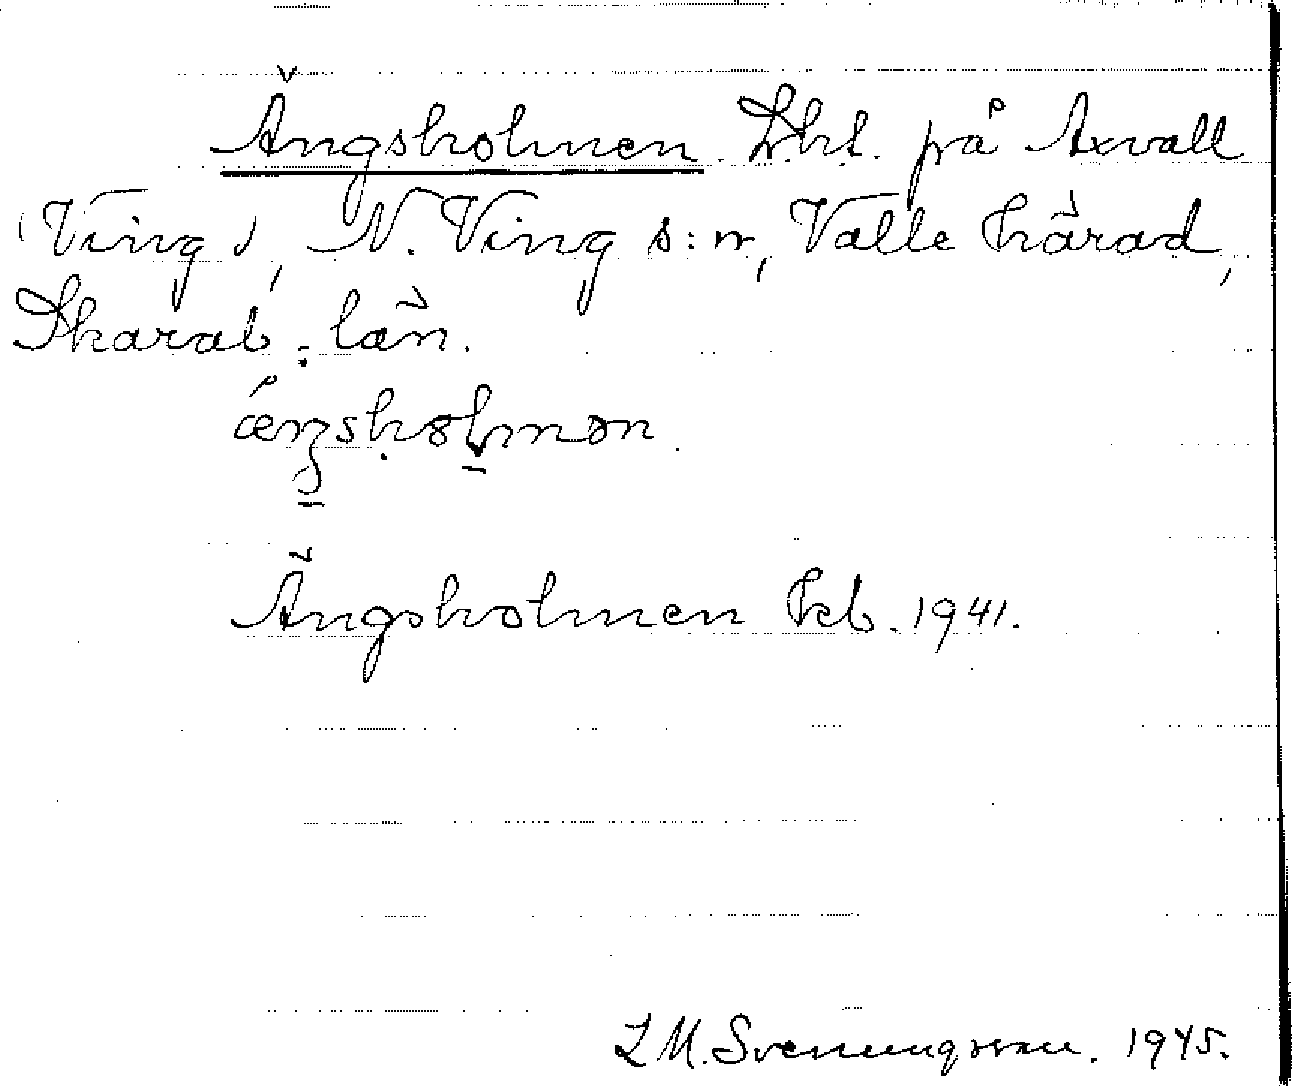 Ängsholmen. Lht. på Axvall
(Ving), N. Ving s:n, Valle härad,
Skarab. län.
Ängsholmen Hkb. 1941.
L M. Svenungsson. 1945.